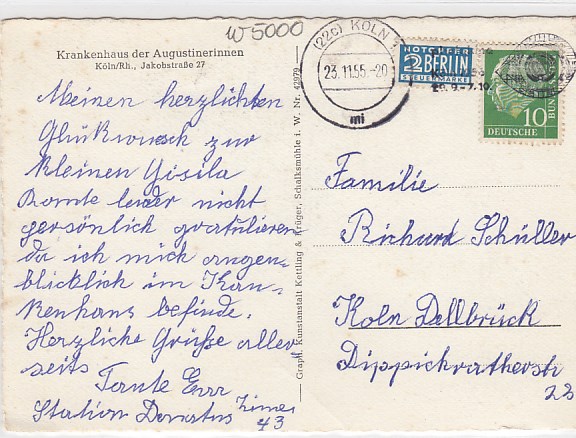 W 5000
Krankenhaus der Augustinerinnen
Köln/Rh., Jakobstraße 27
Meinen herzlichten
Glückwusch zur
kleinen Gisila
Konte leider nicht
persönlich gratulieren
da ich mich augen=
blicklich im Kran=
kenhaus befinde.
Herzliche Grüße aller
seits
Tante
Station Donatus Zimer
43
Graph. Kunstanstalt Kettling & Krüger, Schalksmühle i. W. Nr. 42979
(22c) KÖLN
23.11.55.-20
mi
NOTOPFER
2 BERLIN
STEUERMARKE
29.9.-7.10.
10
DEUTSCHE BUN
Familie
Richard Schüller
Köln Dellbrück
Dippickratherstr
22